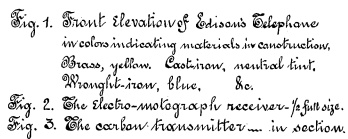 Fig. 1. Front Elevation of Edison's Telephone
in colors indicating materials in construction,
Brass, yellow. Cast-iron, neutral tint.
Wrought-iron, blue. &c.
Fig. 2. The Electro-motograph receiver - 1/2 full size.
Fig. 3. The carbon transmitter — in section.